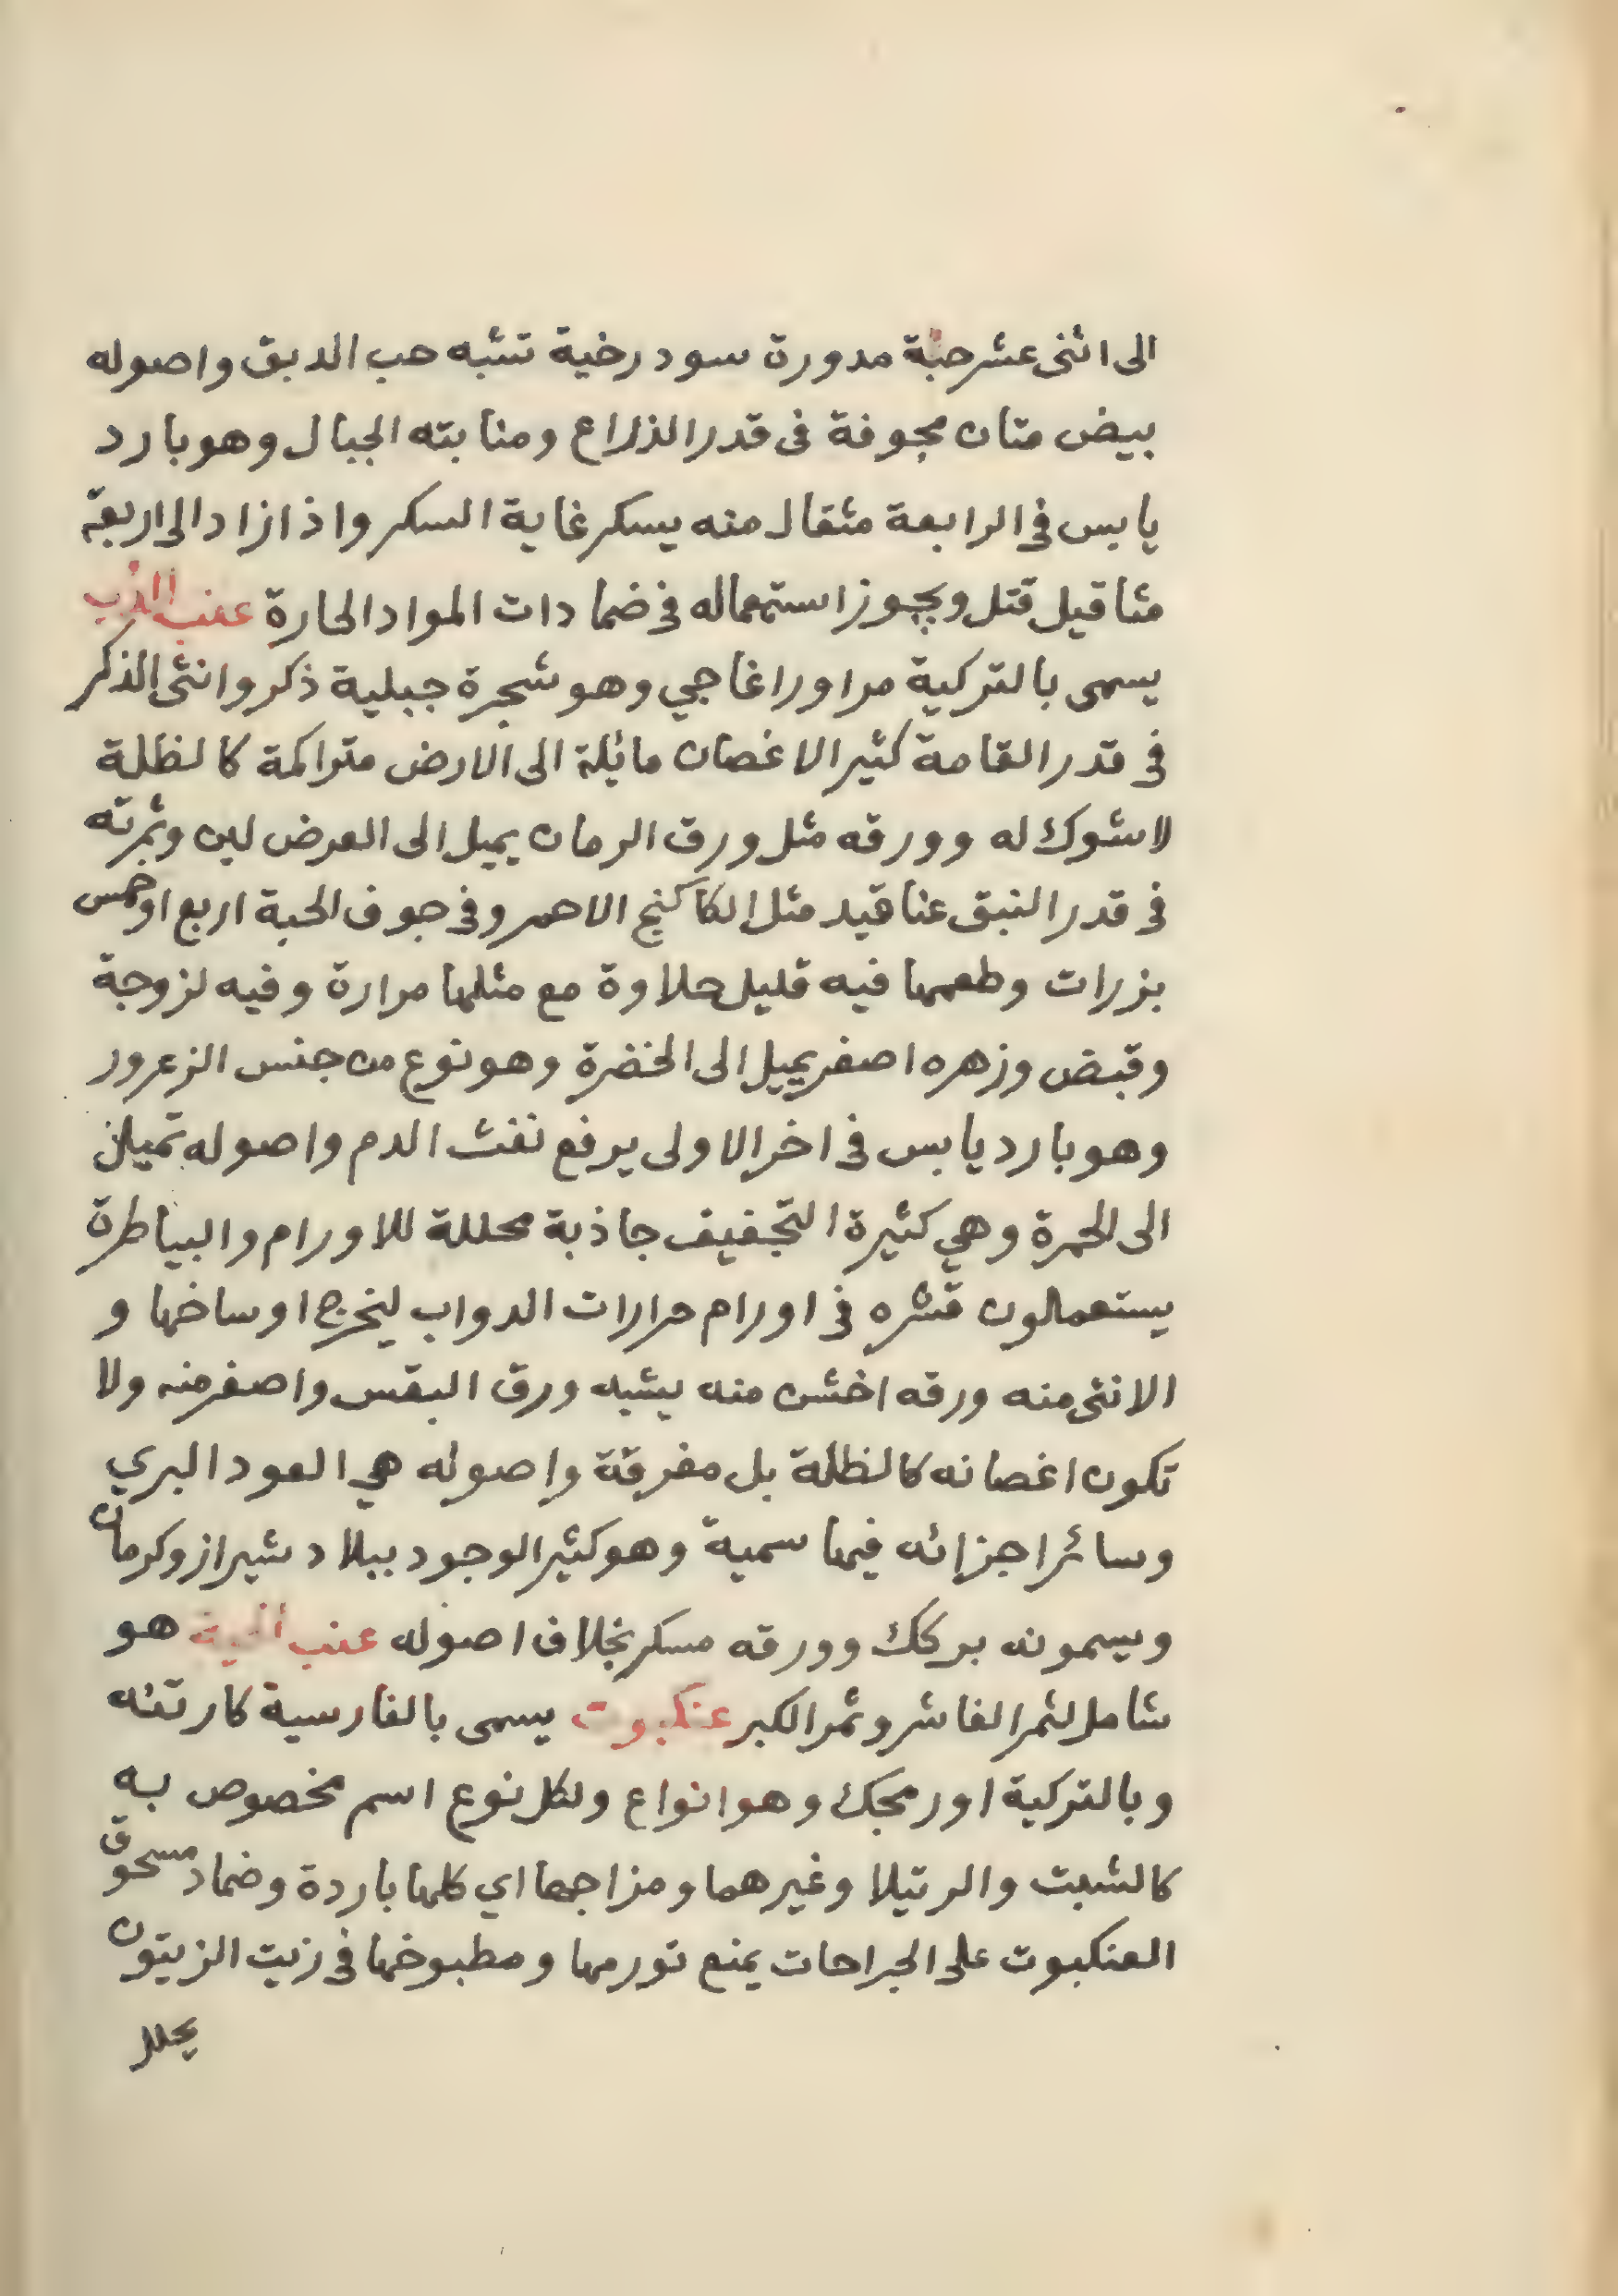 الى اثنى عشر حبة مدورة سود رخية تشبه حب الدبق واصوله
بيض متان مجوفة فى قدر الذراع ومنابته الجبال وهو بارد
يابس فى الرابعة مثقال منه يسكر غاية السكر واذا زاد الى اربعة
مثاقيل قتل ويجوز استعماله فى ضمادات المواد الحارة عنب الدب
يسمى بالتركية مراور اغاجي وهو شجرة جبلية ذكر وانثى الذكر
فى قدر القامة كثير الاغصان مائلة الى الارض متراكمة كالظلة
لا شوك له وورقه مثل ورق الرمان يميل الى العرض لين وثمرته
فى قدر النبق عناقيد مثل الكاكنج الاحمر وفى جوف الحبة اربع او خمس
بزرات وطعمها فيه قليل حلاوة مع مثلها مرارة وفيه لزوجة
وقبض وزهره اصفر يميل الى الخضرة وهو نوع من جنس الزعرور
وهو بارد يابس فى اخر الاولى يرفع نفث الدم واصوله تميل
الى الحمرة وهي كثيرة التجفيف جاذبة محللة للاورام والبياطرة
يستعملون قشره فى اورام مرارات الدواب ليخرج اوساخها و
الانثى منه ورقه اخشن منه يشبه ورق البقس واصفر منه ولا
تكون اغصانه كالظلة بل مفرقة واصوله هي العود البري
وسائر اجزائه فيها سمية وهو كثير الوجود ببلاد شيراز وكرمان
ويسمونه بركك وورقه مسكر بخلاف اصوله عنب الحية هو
شامل لثمر الفاشر وثمر الكبر عنكبوت يسمى بالفارسية كارتنه
وبالتركية اورمجك وهو انواع ولكل نوع اسم مخصوص به
كالشبت والرتيلا وغيرهما ومزاجها اي كلها باردة وضماد مسحوق
العنكبوت على الجراحات يمنع تورمها ومطبوخها فى زيت الزيتون
يحلل